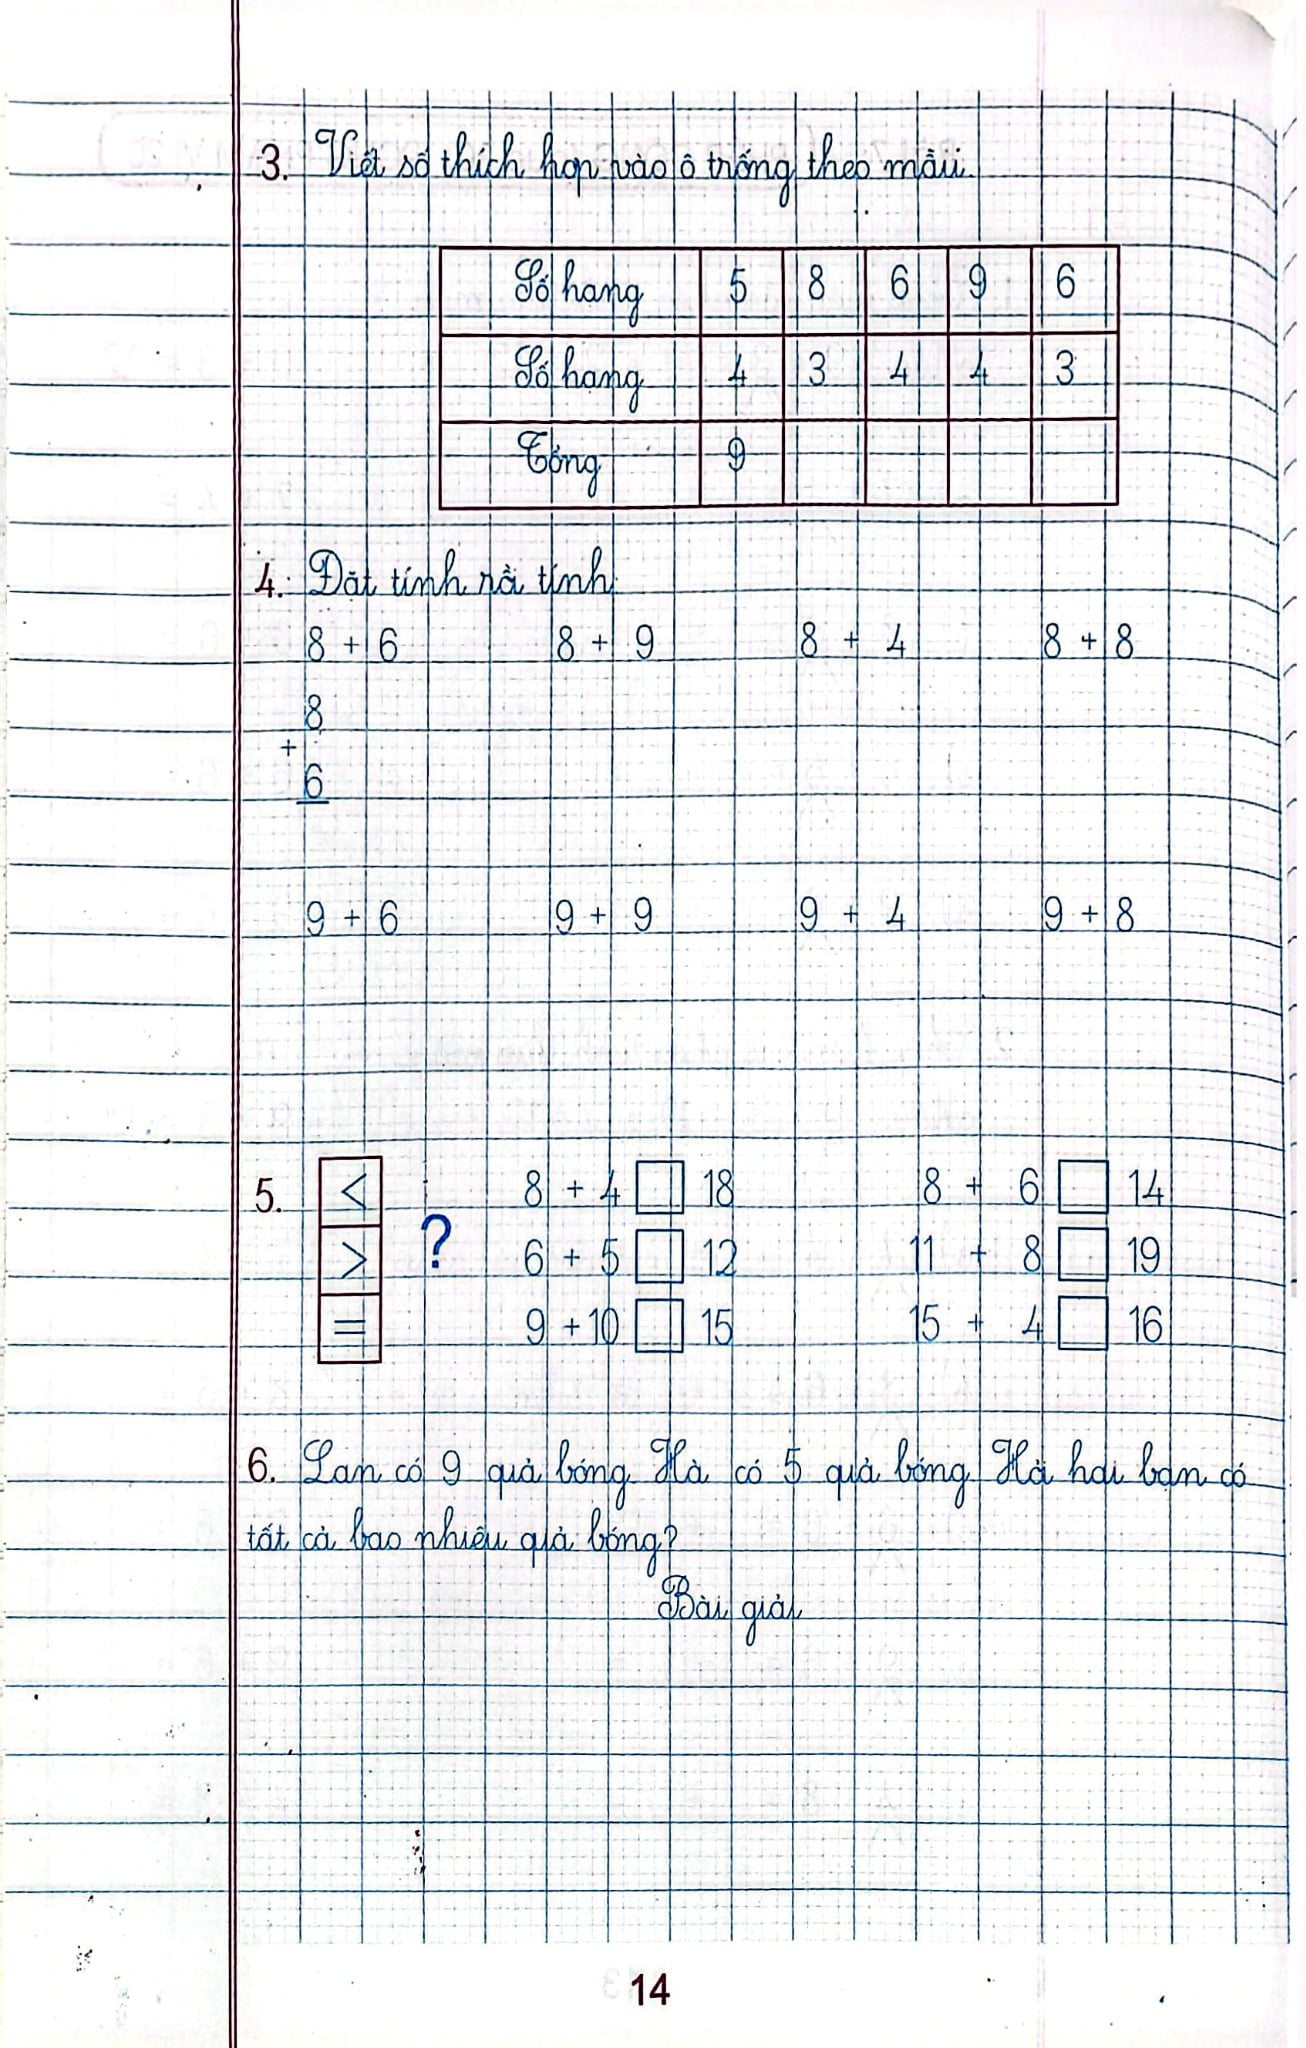 3. Viết số thích hợp vào ô trống theo mẫu.
Số hạng 5 8 6 9 6
Số hạng 4 3 4 4 3
Tổng 9
4. Đặt tính rồi tính
8 + 6 8 + 9 8 + 4 8 + 8
8
+
6
9 + 6 9 + 9 9 + 4 9 + 8
5. < 8 + 4 18 8 + 6 14
> ? 6 + 5 12 11 + 8 19
= 9 + 10 15 15 + 4 16
6. Lan có 9 quả bóng Hà có 5 quả bóng Hả hai bạn có
tất cả bao nhiêu quả bóng?
Bài giải
14